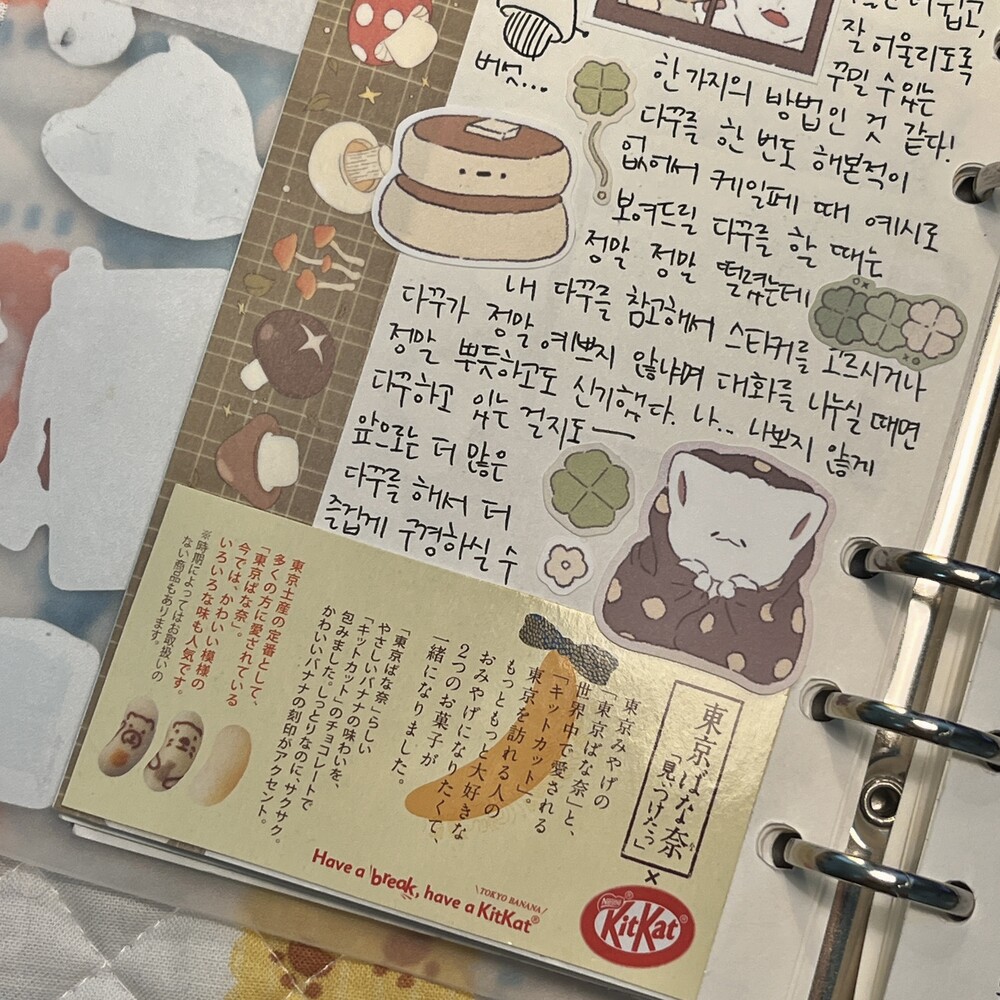 잘 어울리도록
꾸밀 수 있는
한 가지의 방법인 것 같다!
버섯...
다꾸를 한 번도 해본적이
없어서 케일페 때 예시로
보여드릴 다꾸를 할 때는
정말 정말 떨렸는데
내 다꾸를 참고해서 스티커를 고르시거나
다꾸가 정말 예쁘지 않냐며 대화를 나누실 때면
정말 뿌듯하고도 신기했다. 나.. 나쁘지 않게
다꾸하고 있는 걸지도ー
앞으로는 더 많은
다꾸를 해서 더
즐겁게 구경하실 수
東京ばな奈
「見ぃつけたっ」
×
Nestle
KitKat
東京みやげの
「東京ばな奈」と、
世界中で愛される
「キットカット」。
東京を訪れる人の
もっともっと大好きな
おみやげになりたくて、
2つのお菓子が
一緒になりました。
「東京ばな奈」らしい
やさしいバナナの味わいを、
「キットカット」のチョコレートで
包みました。しっとりなのに、サクサク。
かわいいバナナの刻印がアクセント。
東京土産の定番として、
多くの方に愛されている
「東京ばな奈」。
今では、かわいい模様の
いろいろな味も人気です。
※時期によってはお取扱いの
ない商品もあります。
Have a break, have a KitKat®
TOKYO BANANA